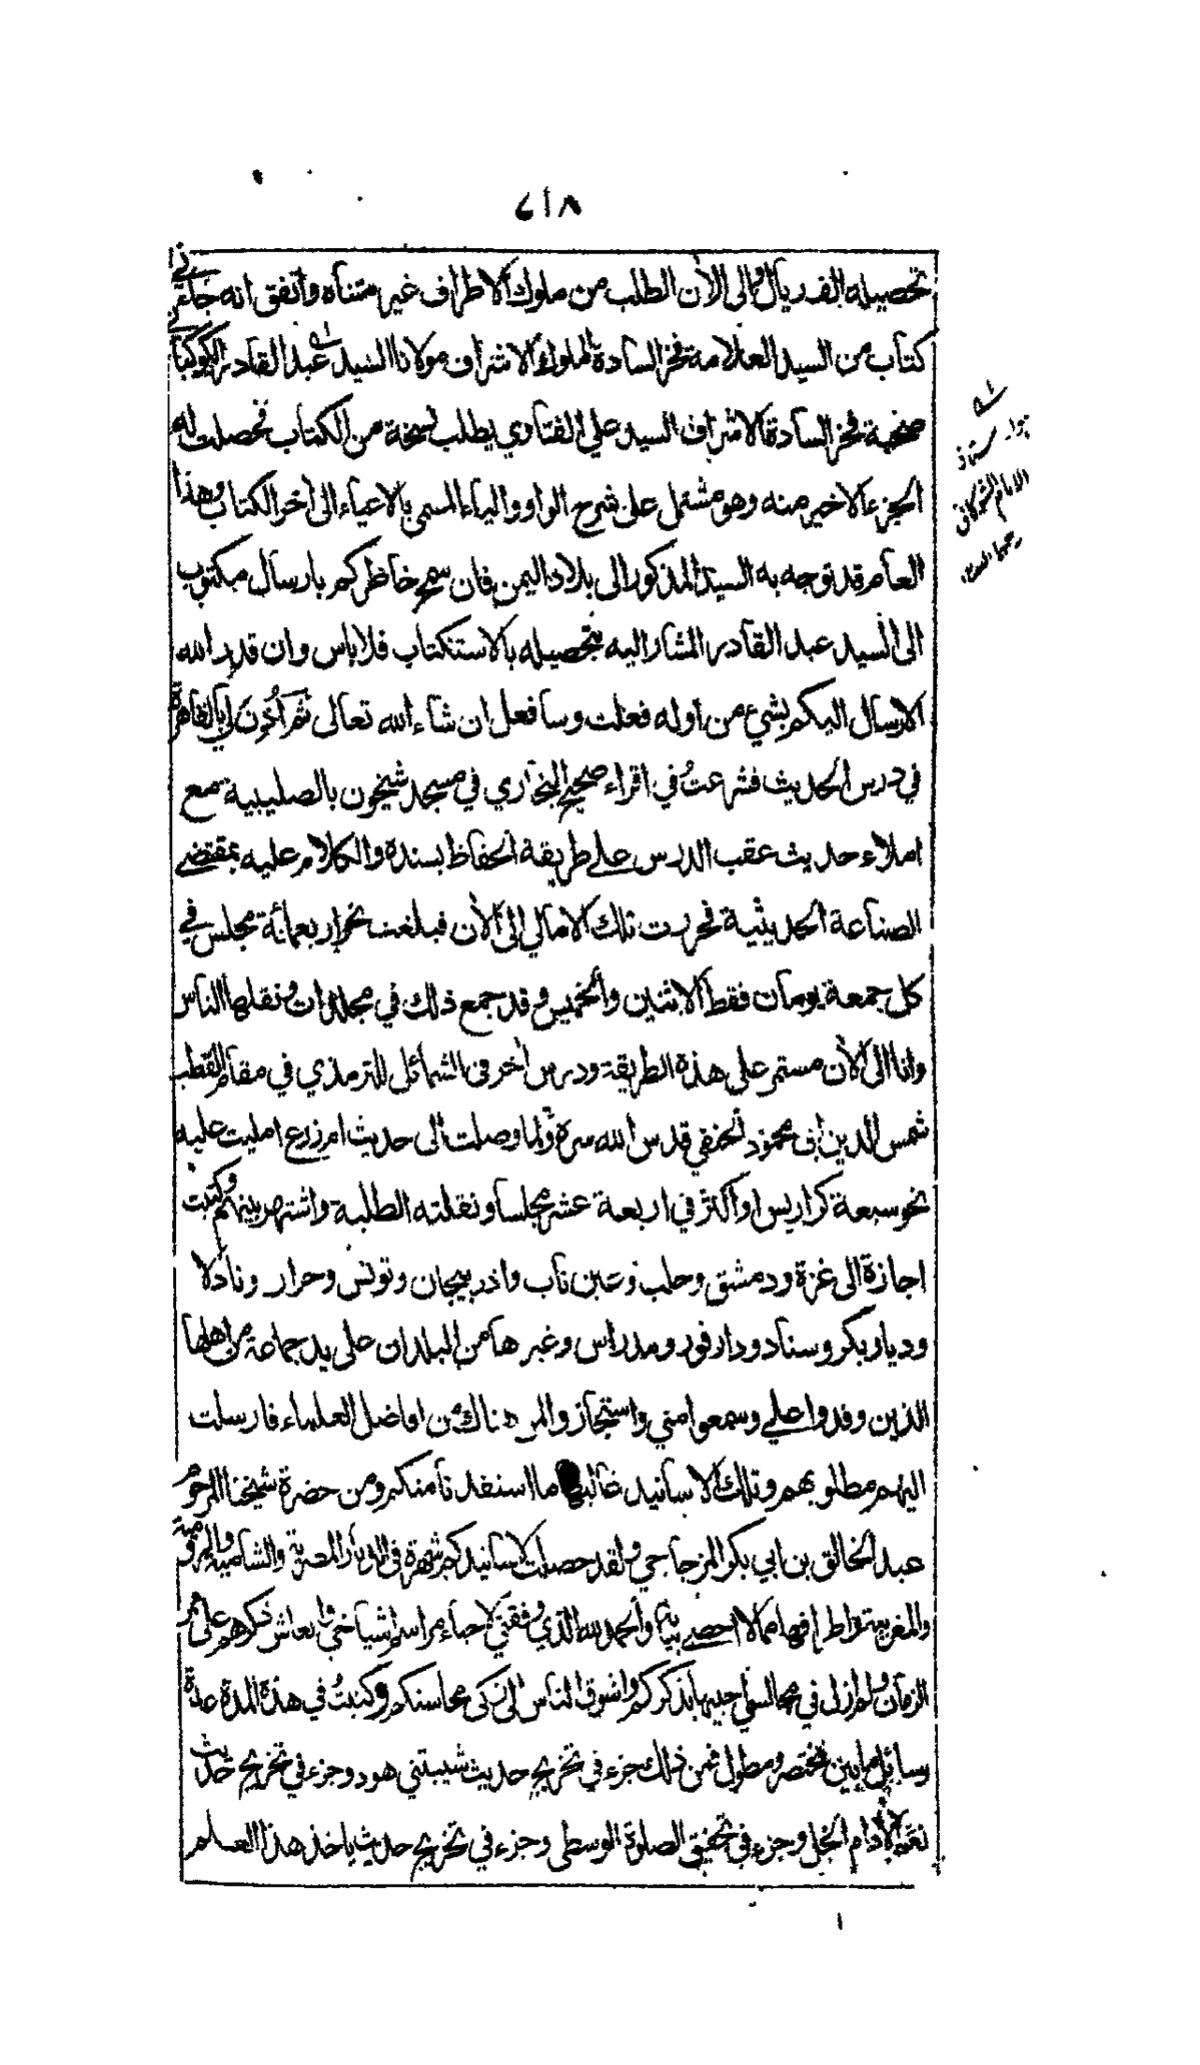 ٢١٨
تحصيله الف ريال والى الآن الطلب من ملوك الاطراف غير متناه واتفق انه جاءني
كتاب من السيد العلامة فخر السادة الملوك الاشراف مولانا السيد عبد القادر الكوكباني
صحبة فخر السادة الاشراف السيد علي القناوي يطلب نسخة من الكتاب فحصلت له
الجزء الاخير منه وهو مشتمل على شرح الواو والياء المسمى بالاعياء الى اخر الكتاب وهذا
العام قد توجه به السيد المذكور الى بلاد اليمن فان سمح خاطركم بارسال مكتوب
الى السيد عبد القادر المشار اليه بتحصيله بالاستكتاب فلا باس وان قدر الله
الارسال اليكم بشيء من اوله فعلت وسافعل ان شاء الله تعالى ثم اُذِنَ لي بالقاهرة
في درس الحديث فشرعتُ في اقراء صحيح البخاري في مسجد شيخون بالصليبية مع
املاء حديث عقب الدرس على طريقة الحفاظ بسنده والكلام عليه بمقتضى
الصناعة الحديثية فحررت تلك الامالي الى الآن فبلغت نحو اربعمائة مجلس في
كل جمعة يومان فقط الاثنين والخميس وقد جمع ذلك في مجلدات ونقلها الناس
وانا الى الآن مستمر على هذه الطريقة ودرس آخر في الشمائل للترمذي في مقام القطب
شمس الدين ابي محمود الحنفي قدس الله سره ولما وصلت الى حديث ام زرع امليت عليه
نحو سبعة كراريس او اكثر في اربعة عشر مجلسا ونقلته الطلبة واشتهر بينهم وكتبت
اجازة الى غزة ودمشق وحلب وعين تاب واذربيجان وتونس وحرار ونادلا
وديار بكر وسناد ودارفور ومدراس وغيرها من البلدان على يد جماعة من اهلها
الذين وفدوا علي وسمعوا مني واستجازوا لمن هناك من افاضل العلماء فارسلت
اليهم مطلوبهم وتلك الاسانيد غالبها ما استفدنا منكم ومن حضرة شيخنا المرحوم
عبد الخالق بن ابي بكر المزجاجي ولقد حصلت لاسانيدكم شهرة في الديار المصرية والشامية والرومية
والمغربية واطرافها مما لا احصي بيانه والحمد لله الذي وفقني لاحياء مراسم اشياخي وانعاش ذكرهم على ممر
الزمان ولم ازل في مجالسي احييها بذكركم واشوق الناس الى ذكى محاسنكم وكتبتُ في هذه المدة عدة
رسائل ما بين مختصر ومطول فمن ذلك جزء في تخريج حديث شيبتني هود وجزء في تخريج حديث
نعم الادام الخل وجزء في تحقيق الصلوة الوسطى وجزء في تخريج حديث ياخذ هذا العلم
الامام الشوكاني
رحمهما الله